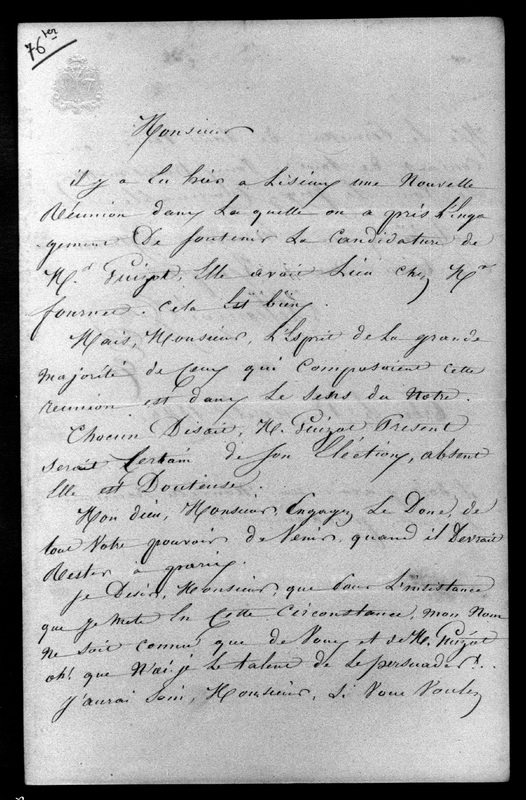 76 ter
Monsieur
il y a Eu hier a Lisieux une Nouvelle
Réunion dans La quelle on a pris L'Enga
gement De soutenir La Candidature de
M.r Guizot, Elle avait Lieu chez Mr
fournet. cela Est bien.
Mais, Monsieur, L'Esprit de La grande
majorité de Ceux qui Composaient cette
reunion est dans Le sens du Notre.
Chacun Disait, M. Guizot Present
serait Certain de son Eléction, absent
Elle est Douteuse.
Mon dieu, Monsieur, Engagez Le Donc, de
tout Votre pouvoir de Venir, quand il Devrait
Rester à paris.
je Desire, Monsieur, que pour L'insistance
que je mets En Cette Circonstance, mon Nom
ne soit connu que de Vous et de M. Guizot
oh! que N'ai-je Le talent de Le persuader!..
j'aurai soin, Monsieur, si Vous Voulez